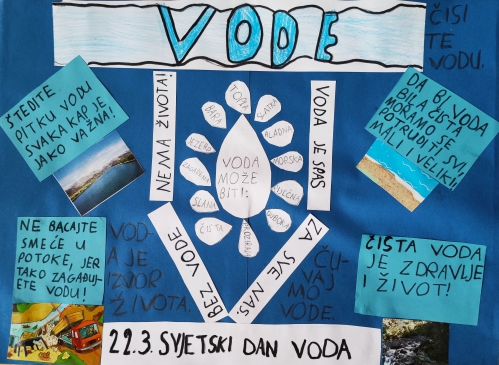 VODE
ČISI
TE
VODU.
ŠTEDITE
PITKU VODU
SVAKA KAP JE
JAKO VAŽNA!
NEMA ŽIVOTA!
TOPLA
SLATKA
BARA
HLADNA
JEZERA
MORSKA
ZAGAĐENA
RIJEČNA
SLANA
DUBOKA
ČISTA
VODA
MOŽE
BITI:
VODA JE SPAS
DA BI VODA
BILA ČISTA
MORAMO SE
POTRUDITI SVI,
MALI I VELIKI!
NE BACAJTE
SMEĆE U
POTOKE, JER
TAKO ZAGAĐUJ-
ETE VODU!
VOD-
A JE
IZVOR
ŽIVOTA.
BEZ VODE
ZA SVE NAS.
ČU-
VAJ
MO
VODE.
ČISTA VODA
JE ZDRAVLJE
I ŽIVOT!
22.3. SVJETSKI DAN VODA